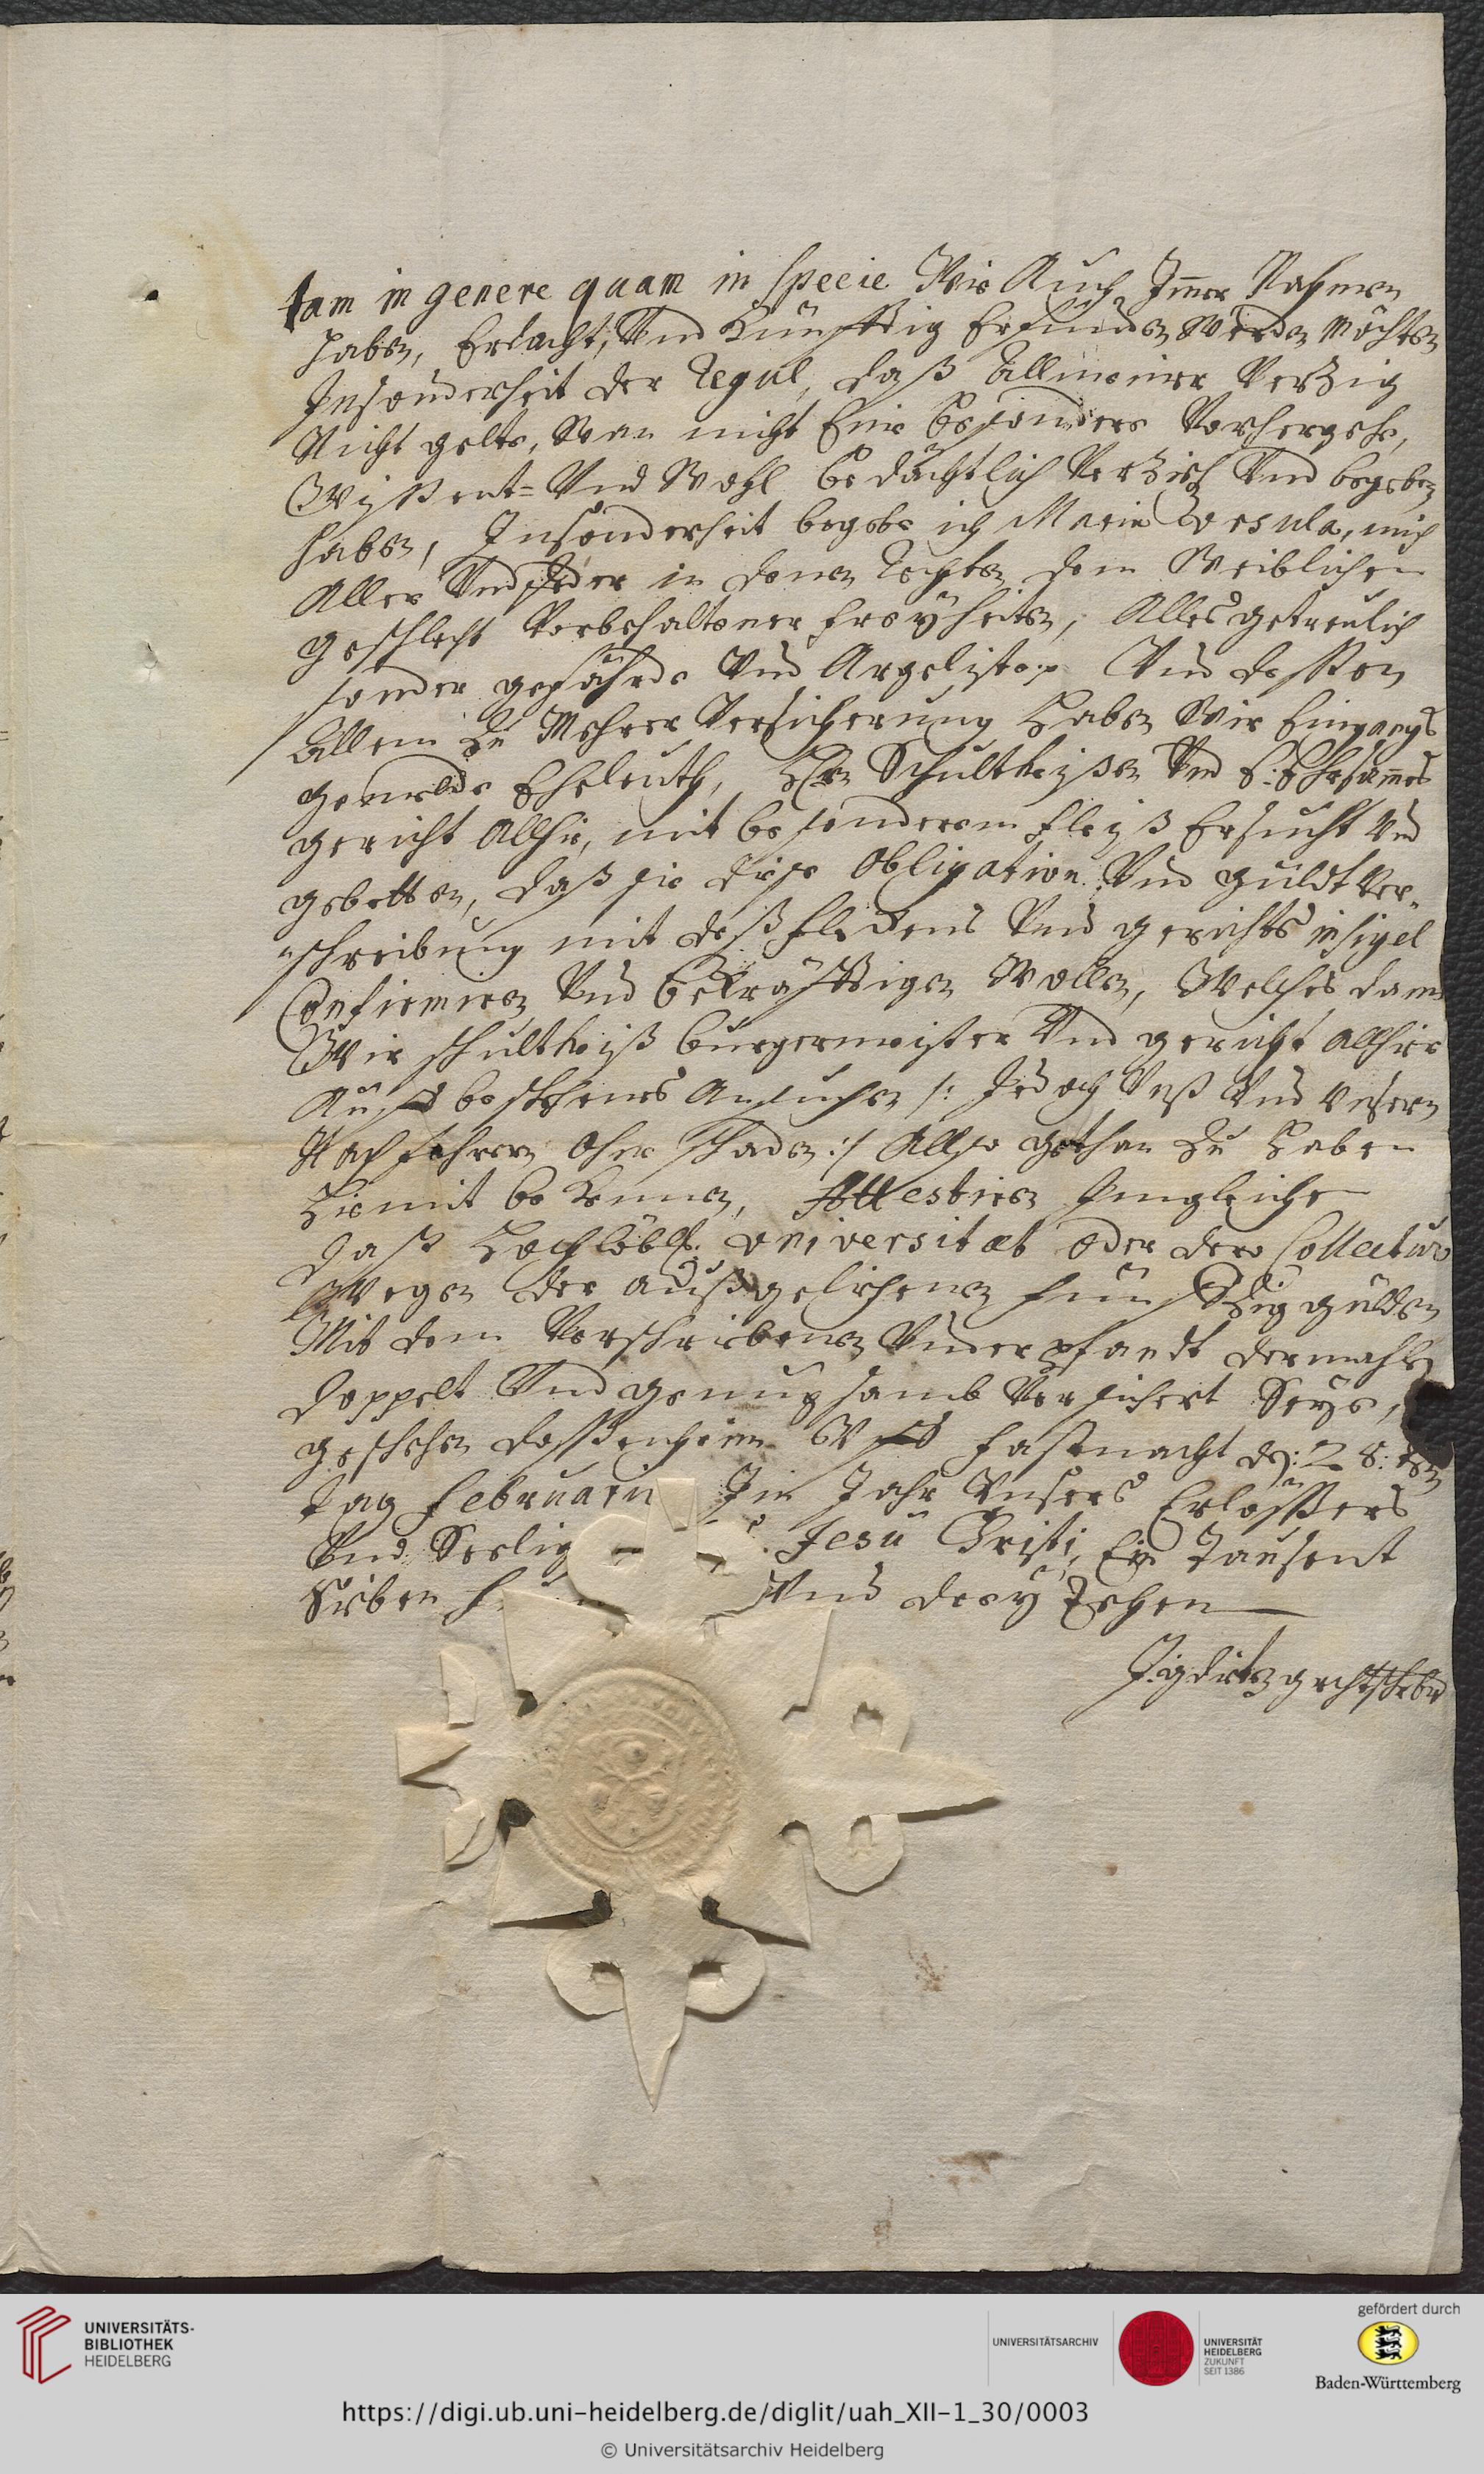 tam in genere quam in specie Wie Auch Immer Nahmen
haben, Erdacht, Vnd Künfftig Erfunden Werden Möchten
Insonderheit der Regul, daß Allgemeiner Verzig
Nicht gelte, Wan nicht Eine besondere Vorhergehe,
Wissent= Vnd Wohl bedächtlich Verzieh Vnd begeben
haben, Insonderheit begebe ich Maria Vrsula, mich
Aller Vnd Jeder in denen Rechten dem Weiblichen
geschlecht Vorbehaltener freyheiten, Alles getreulich
sonder gefährde Vnd Argeliste. Vnd dessen
Allem Zu Mehrer Versicherung Haben Wir Eingangs
gemelde Eheleuth, Hrn Schultheißen Vnd E: Ehrsames
gericht Allhie, mit besonderem fleiß Ersucht Vnd
gebetten, daß sie diese Obligation Vnd güldt Ver„
„schreibung mit deß fleckens Vnd gerichts insigel
Confirmiren Vnd bekräfftigen Wollen, Welches dann
Wir schultheiß burgermeister Vnd gericht Allhier
Auff beschehenes Ansuchen /: Jedoch Vnß Vnd Vnsern
Nachfahren Ohne schaden :/ Also gethan Zu Haben
Hiemit bekennen, Attestiren Imgleichen
daß Hochlöbl. Vniversitæt oder dero Collectur
Wegen der außgeliehenen funffzig gulden
Mit dem Verschriebenen Vnderpfandt dermahlen
doppelt Vnd genugsamb Versichert Seye,
geschehen dossenheim Vff fastnacht d: 28: ten
tag februarii Im Jahr Vnsers Erlössers
Vnd Seelig Jesu Christi, Ein Tausent
Sieben h Vnd drey Zehen
UNIVERSITÄTS-
BIBLIOTHEK
HEIDELBERG
UNIVERSITÄTSARCHIV
UNIVERSITÄT
HEIDELBERG
ZUKUNFT
SEIT 1386
gefördert durch
Baden-Württemberg
https://digi.ub.uni-heidelberg.de/diglit/uah_XII-1_30/0003
© Universitätsarchiv Heidelberg